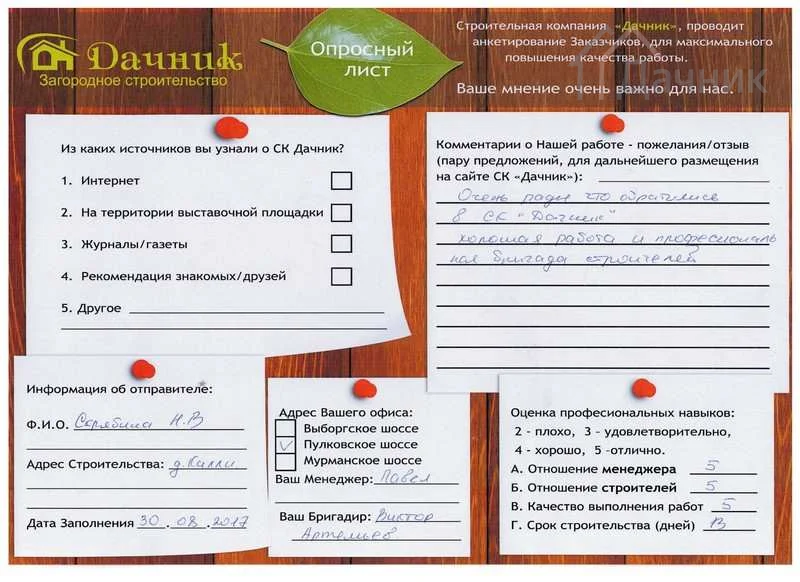 Дачник
Загородное строительство
Опросный
лист
Строительная компания «Дачник», проводит
анкетирование Заказчиков, для максимального
повышения качества работы.
Ваше мнение очень важно для нас.
Дачник
Из каких источников вы узнали о СК Дачник?
1. Интернет
2. На территории выставочной площадки
3. Журналы/газеты
4. Рекомендация знакомых/друзей
5. Другое
Комментарии о Нашей работе - пожелания/отзыв
(пару предложений, для дальнейшего размещения
на сайте СК «Дачник»):
Очень рады что обратились
в СК "Дачник"
хорошая работа и професиональ
ная бригада строителей
Информация об отправителе:
Ф.И.О. Скрябина Н.В
Адрес Строительства: д.Капли
Дата Заполнения 30.08.2017
Адрес Вашего офиса:
Выборгское шоссе
Пулковское шоссе
Мурманское шоссе
Ваш Менеджер: Павел
Ваш Бригадир: Виктор
Артемьев
Оценка професиональных навыков:
2 - плохо, 3 - удовлетворительно,
4 - хорошо, 5 -отлично.
А. Отношение менеджера 5
Б. Отношение строителей 5
В. Качество выполнения работ 5
Г. Срок строительства (дней) 13